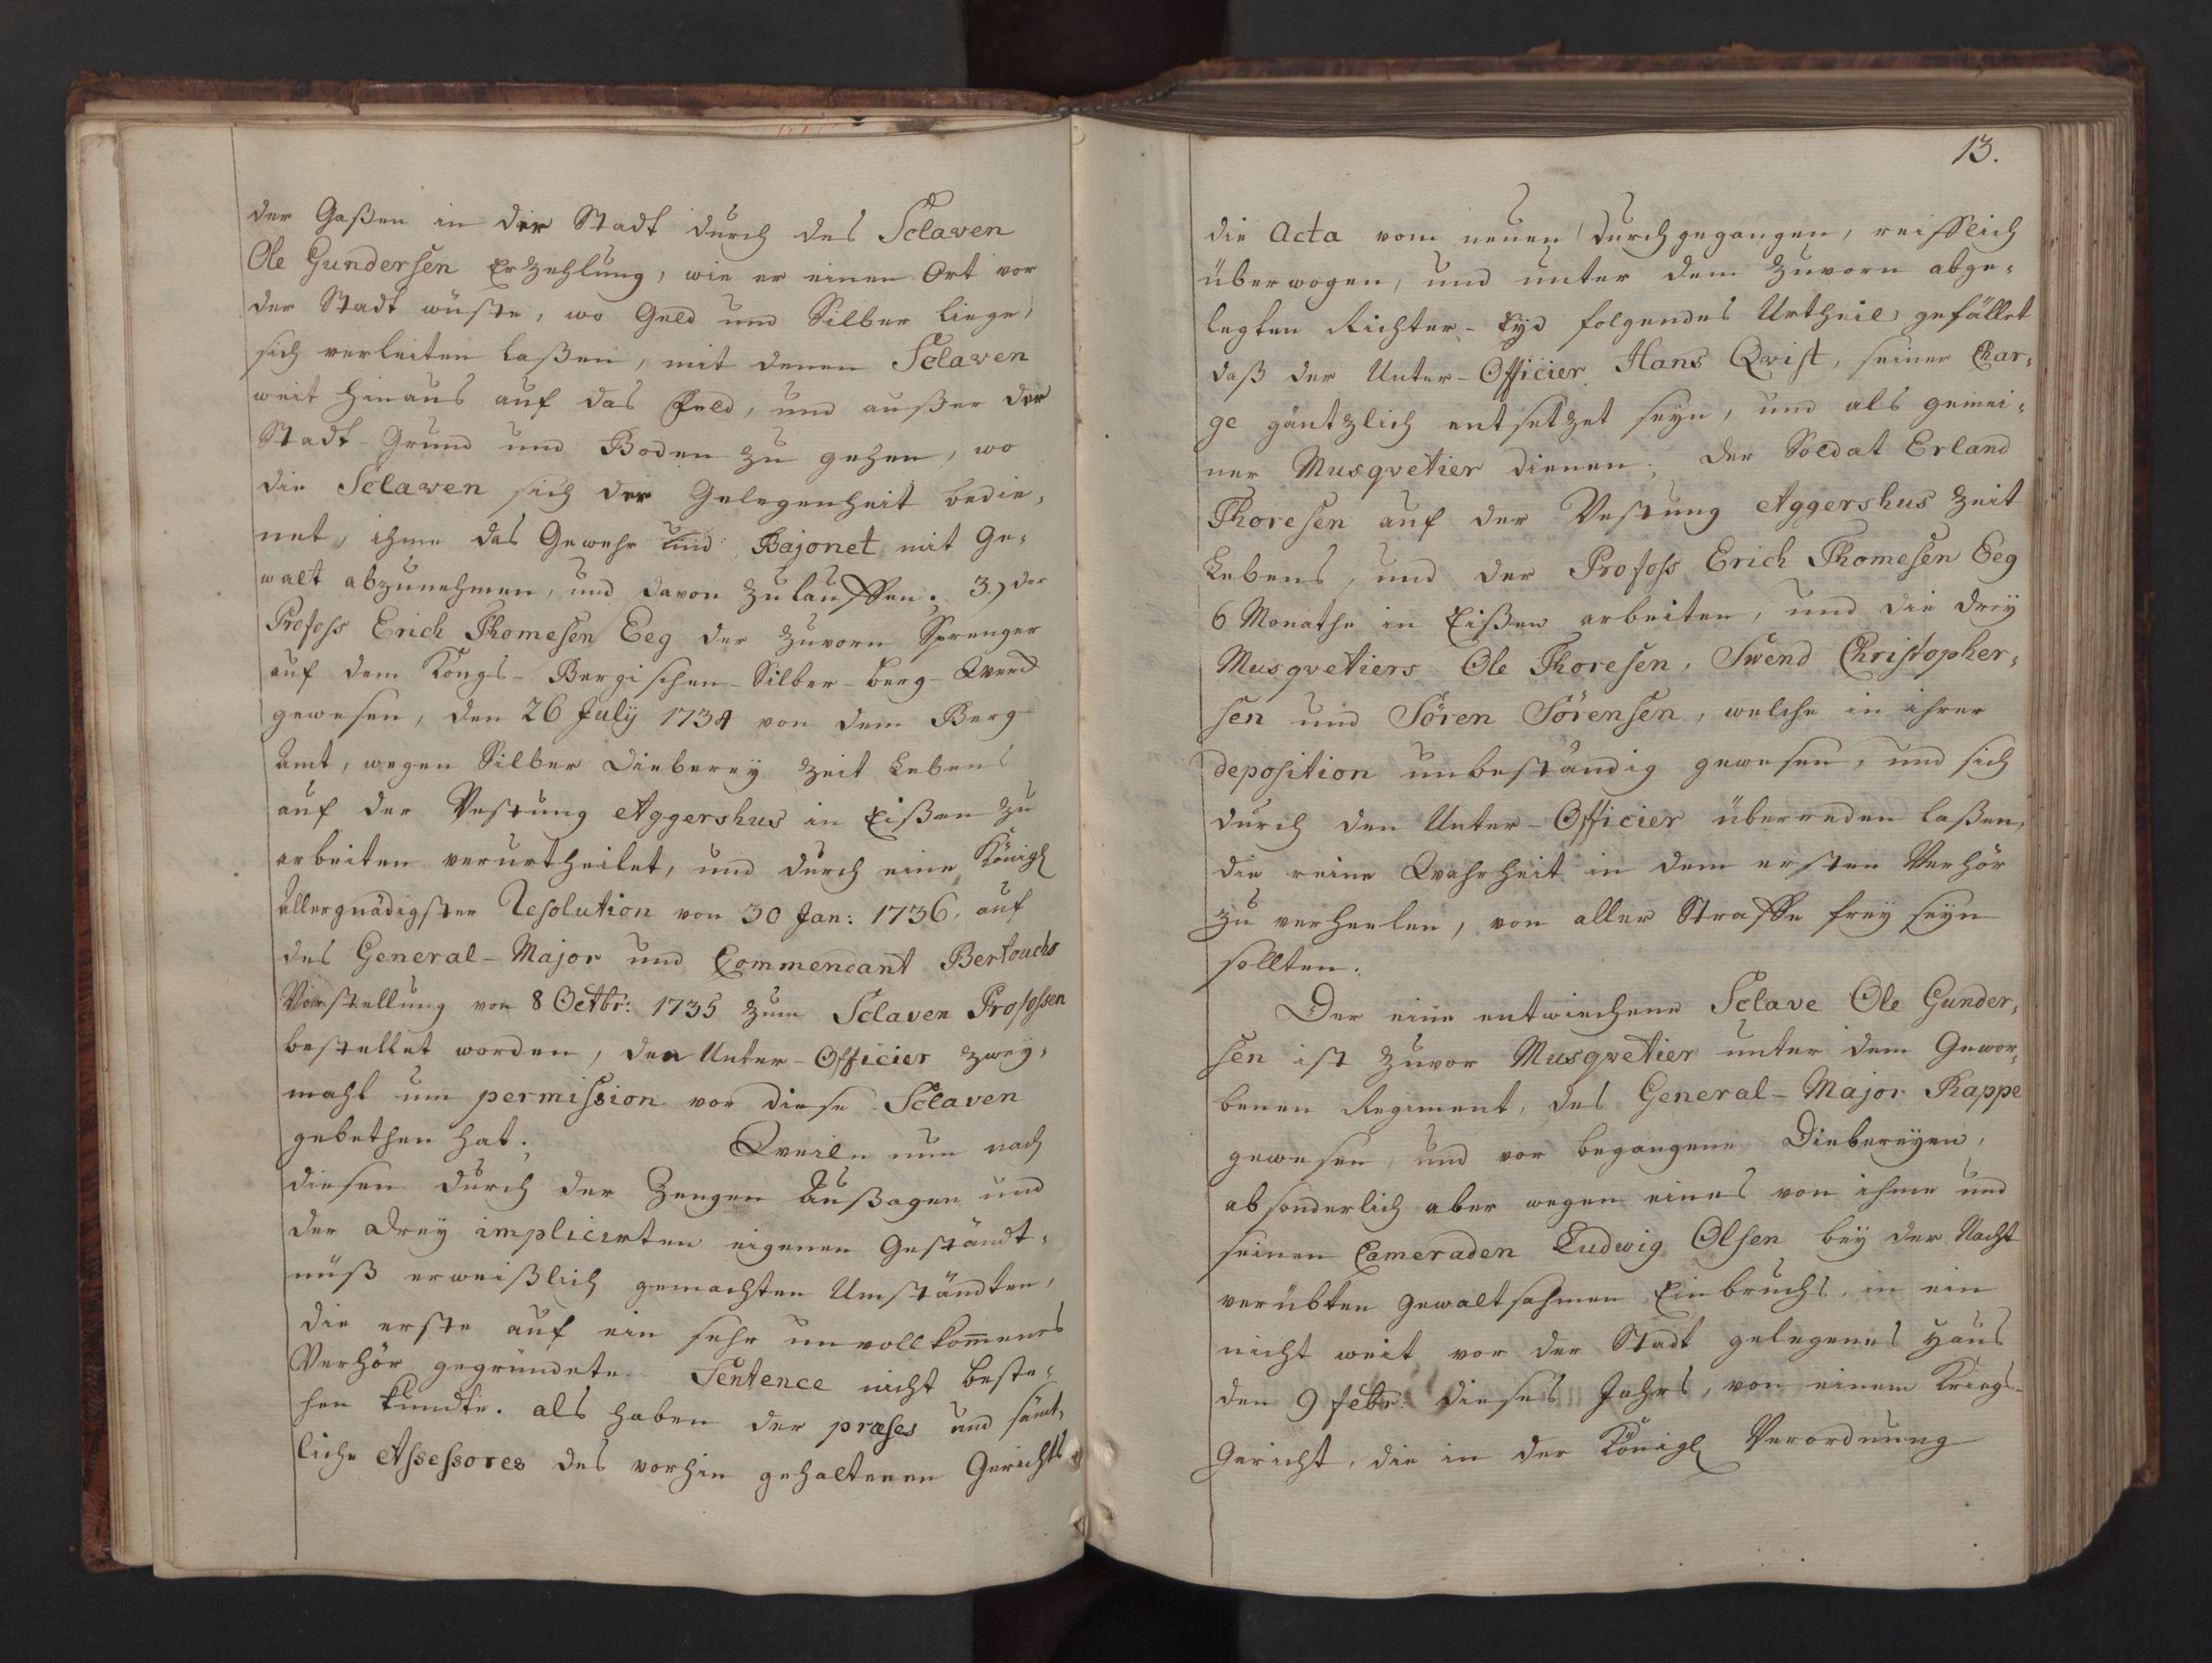 der Gaßen in der Stadt durch des Sclaven
Ole Gundersen Erzehlung, wie er einen Ort vor
der Stadt wüste, wo Geld und Silber liege,
sich verleiten laßen, mit denen Sclaven
weit hinaus auf das Feld, und außer der
Stadt-Grund und Boden zu gehen, wo
die Sclaven sich der Gelegenheit bedie-
net, ihme das Gewehr und Bajonet mit Ge-
walt abzunehmen, und davon zulauffen. 3.) der
Profoss Erich Thomesen Eeg der zuvorn Sprenger
auf dem Kongs-Bergischen-Silber-berg-Werck
gewesen, den 26 July 1734 von dem Berg
Amt, wegen Silber Dieberey Zeit Lebens
auf der Vestung Aggershus in Eißen zu
arbeiten verurtheilet, und durch eine Königl
Allergnädigster Resolution von 30 Jan: 1736, auf
des General-Major und Commendant Bertouchs
Vorstellung von 8 Octbr: 1735 zum Sclaven Profossen
bestellet worden, den Unter-Officier zwey-
mahl um permission vor diese Sclaven
gebethen hat. Weiln nun nach
diesen durch der Zeugen Außagen und
der Drey implicirten eigenen Geständt-
nüß erweißlich gemachten Umständten,
die erste auf ein sehr unvollkom̄enes
Verhör gegründete Sentence nicht beste-
hen kundte. als haben der præses und sämt-
liche Assessores des vorhin gehaltenen Gerichts
13.
die Acta vom neuen durchgegangen, reifflich
überwogen, und unter dem zuvorn abge-
legten Richter-Eyd folgendes Urtheil gefället
daß der Unter-Officier Hans Qvist, seiner Char-
ge gäntzlich entsetzet seyn, und als gemei-
ner Musqvetier dienen; der Soldat Erland
Thoresen auf der Vestung Aggershus Zeit
Lebens, und der Profoss Erich Thomesen Eeg
6 Monathe in Eißen arbeiten, und die drey
Musqvetiers Ole Thoresen, Swend Christopher-
sen und Sören Sörensen, welche in ihrer
deposition unbeständig gewesen, und sich
durch den Unter-Officier überreden laßen,
die reine Wahrheit in dem ersten Verhör
zu verheelen, von aller Straffe frey seyn
sollten.
Der eine entwichene Sclave Ole Gunder-
sen ist zuvor Musqvetier unter dem Gewor-
benen Regiment, des General-Major Rappe
gewesen, und vor begangene Diebereyen,
absonderlich aber wegen eines von ihme und
seinen Cameraden Ludwig Olsen bey der Nacht
verübten gewaltsahmen Einbruchs, in ein
nicht weit vor der Stadt gelegenes Haus
den 9 febr: dieses Jahrs, von einem Kriegs-
Gericht, die in der Königl Verordnung